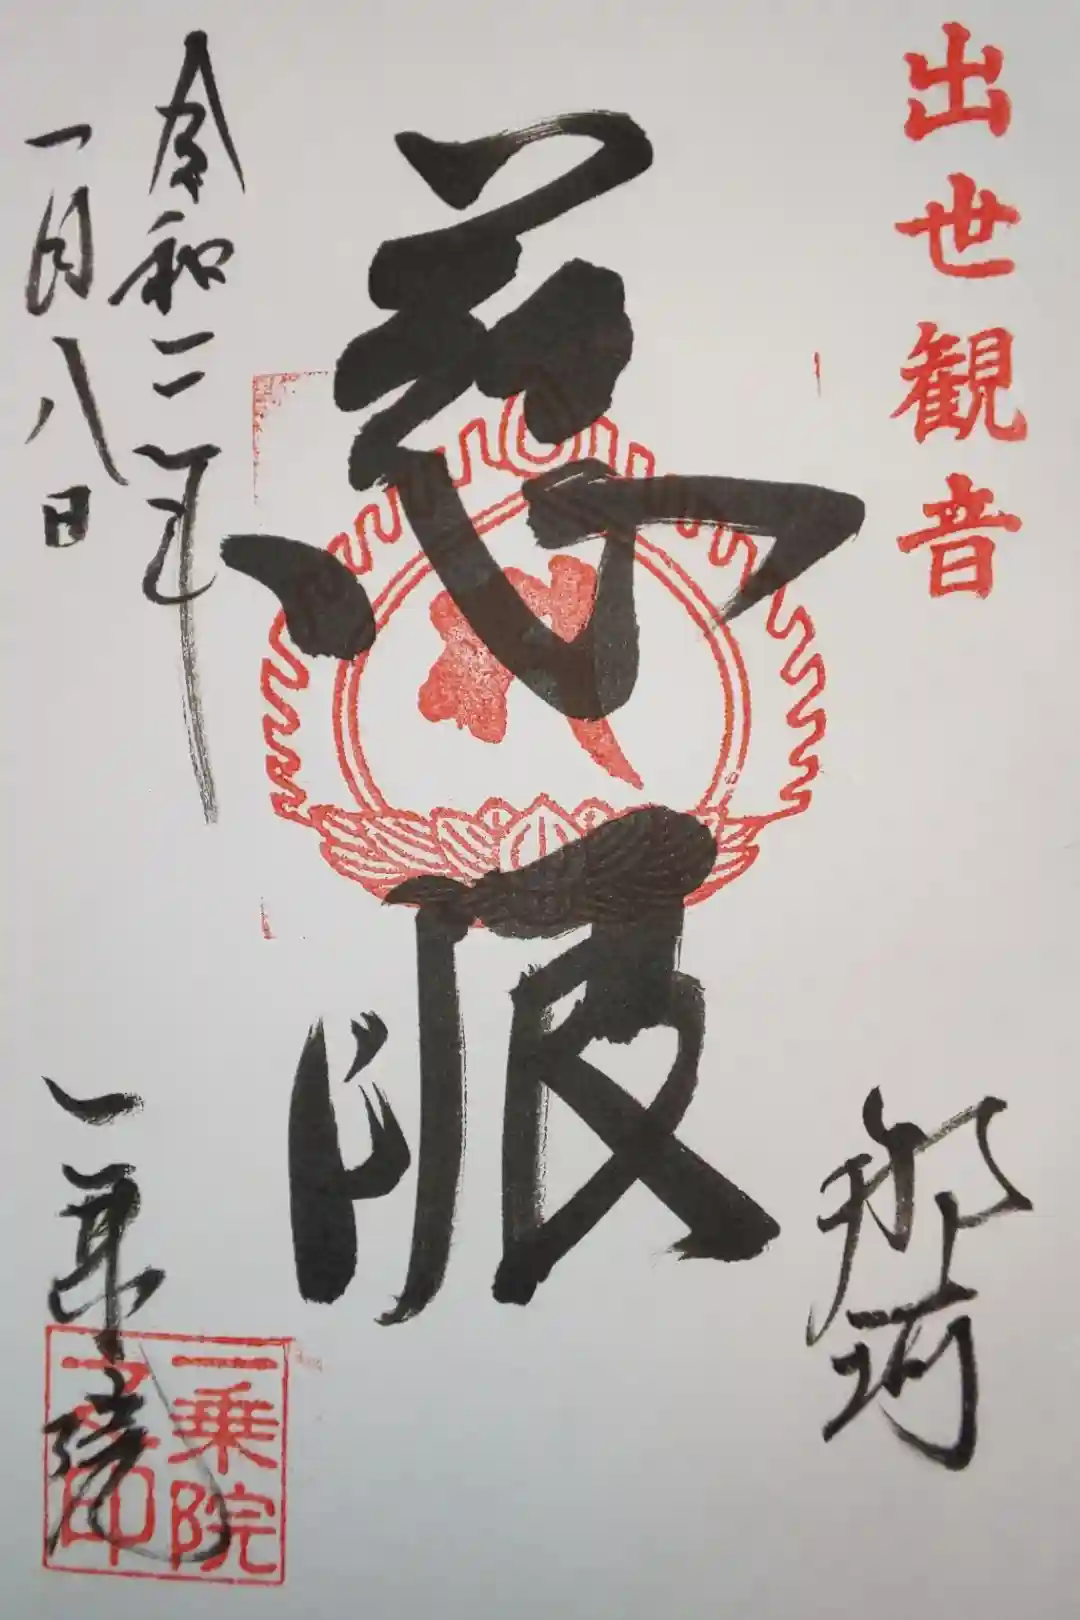 出世観音
那珂
慈眼
令和二年
一月八日
一乗院
一乗院